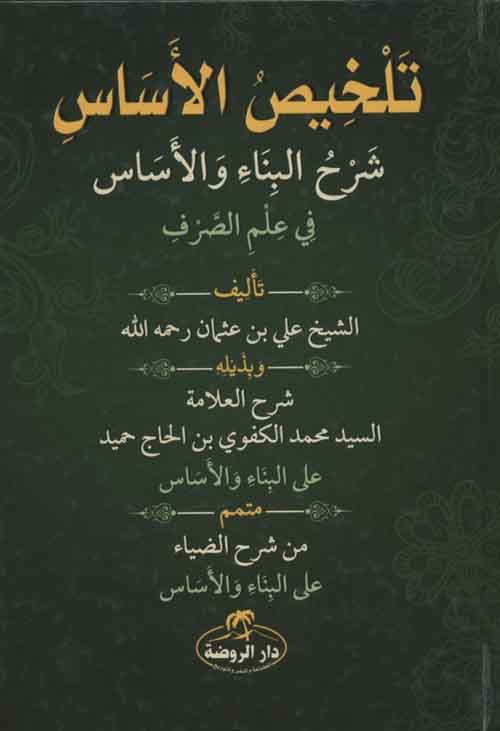 تَلْخِيصُ الأَسَاسِ
شَرْحُ البِنَاءِ وَالأَسَاس
فِي عِلْمِ الصَّرْفِ
تَأْليف
الشيخ علي بن عثمان رحمه الله
وَبِذَيْلِهِ
شرح العلامة
السيد محمد الكفوي بن الحاج حميد
على البِنَاءِ وَالأَسَاس
متمم
من شرح الضياء
على البِنَاءِ وَالأَسَاس
دار الروضة
للطباعة والنشر والتوزيع